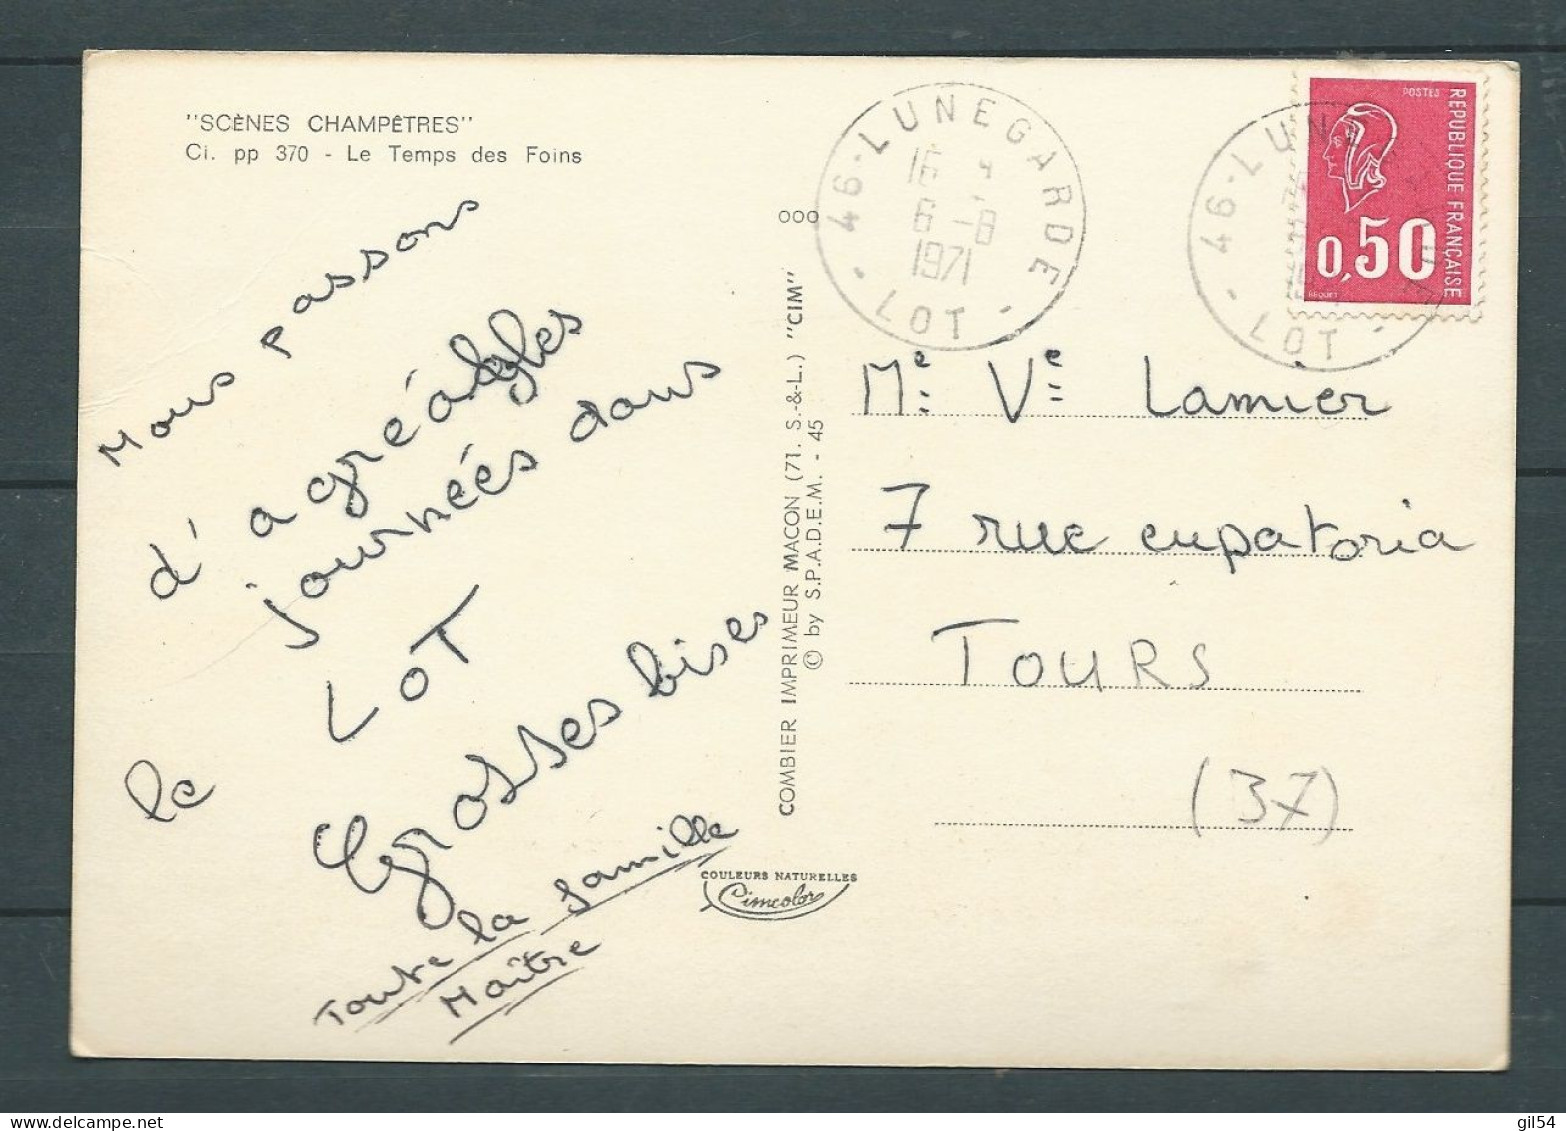 "SCÈNES CHAMPÊTRES"
Ci. pp 370 - Le Temps des Foins
Nous passons
d'agréables
journées dans
le LOT
Grosses bises
Toute la famille
Maître
COULEURS NATURELLES
Cimcolor
COMBIER IMPRIMEUR MACON (71. S.-&-L.) "CIM"
© by S.P.A.D.E.M. - 45
000
46·LUNEGARDE·107·
16
6 -8
1971
46·LUN
107
POSTES
REPUBLIQUE FRANÇAISE
0,50
BEQUET
Me Ve Lamier
7 rue eupatoria
TOURS
(37)
gil54